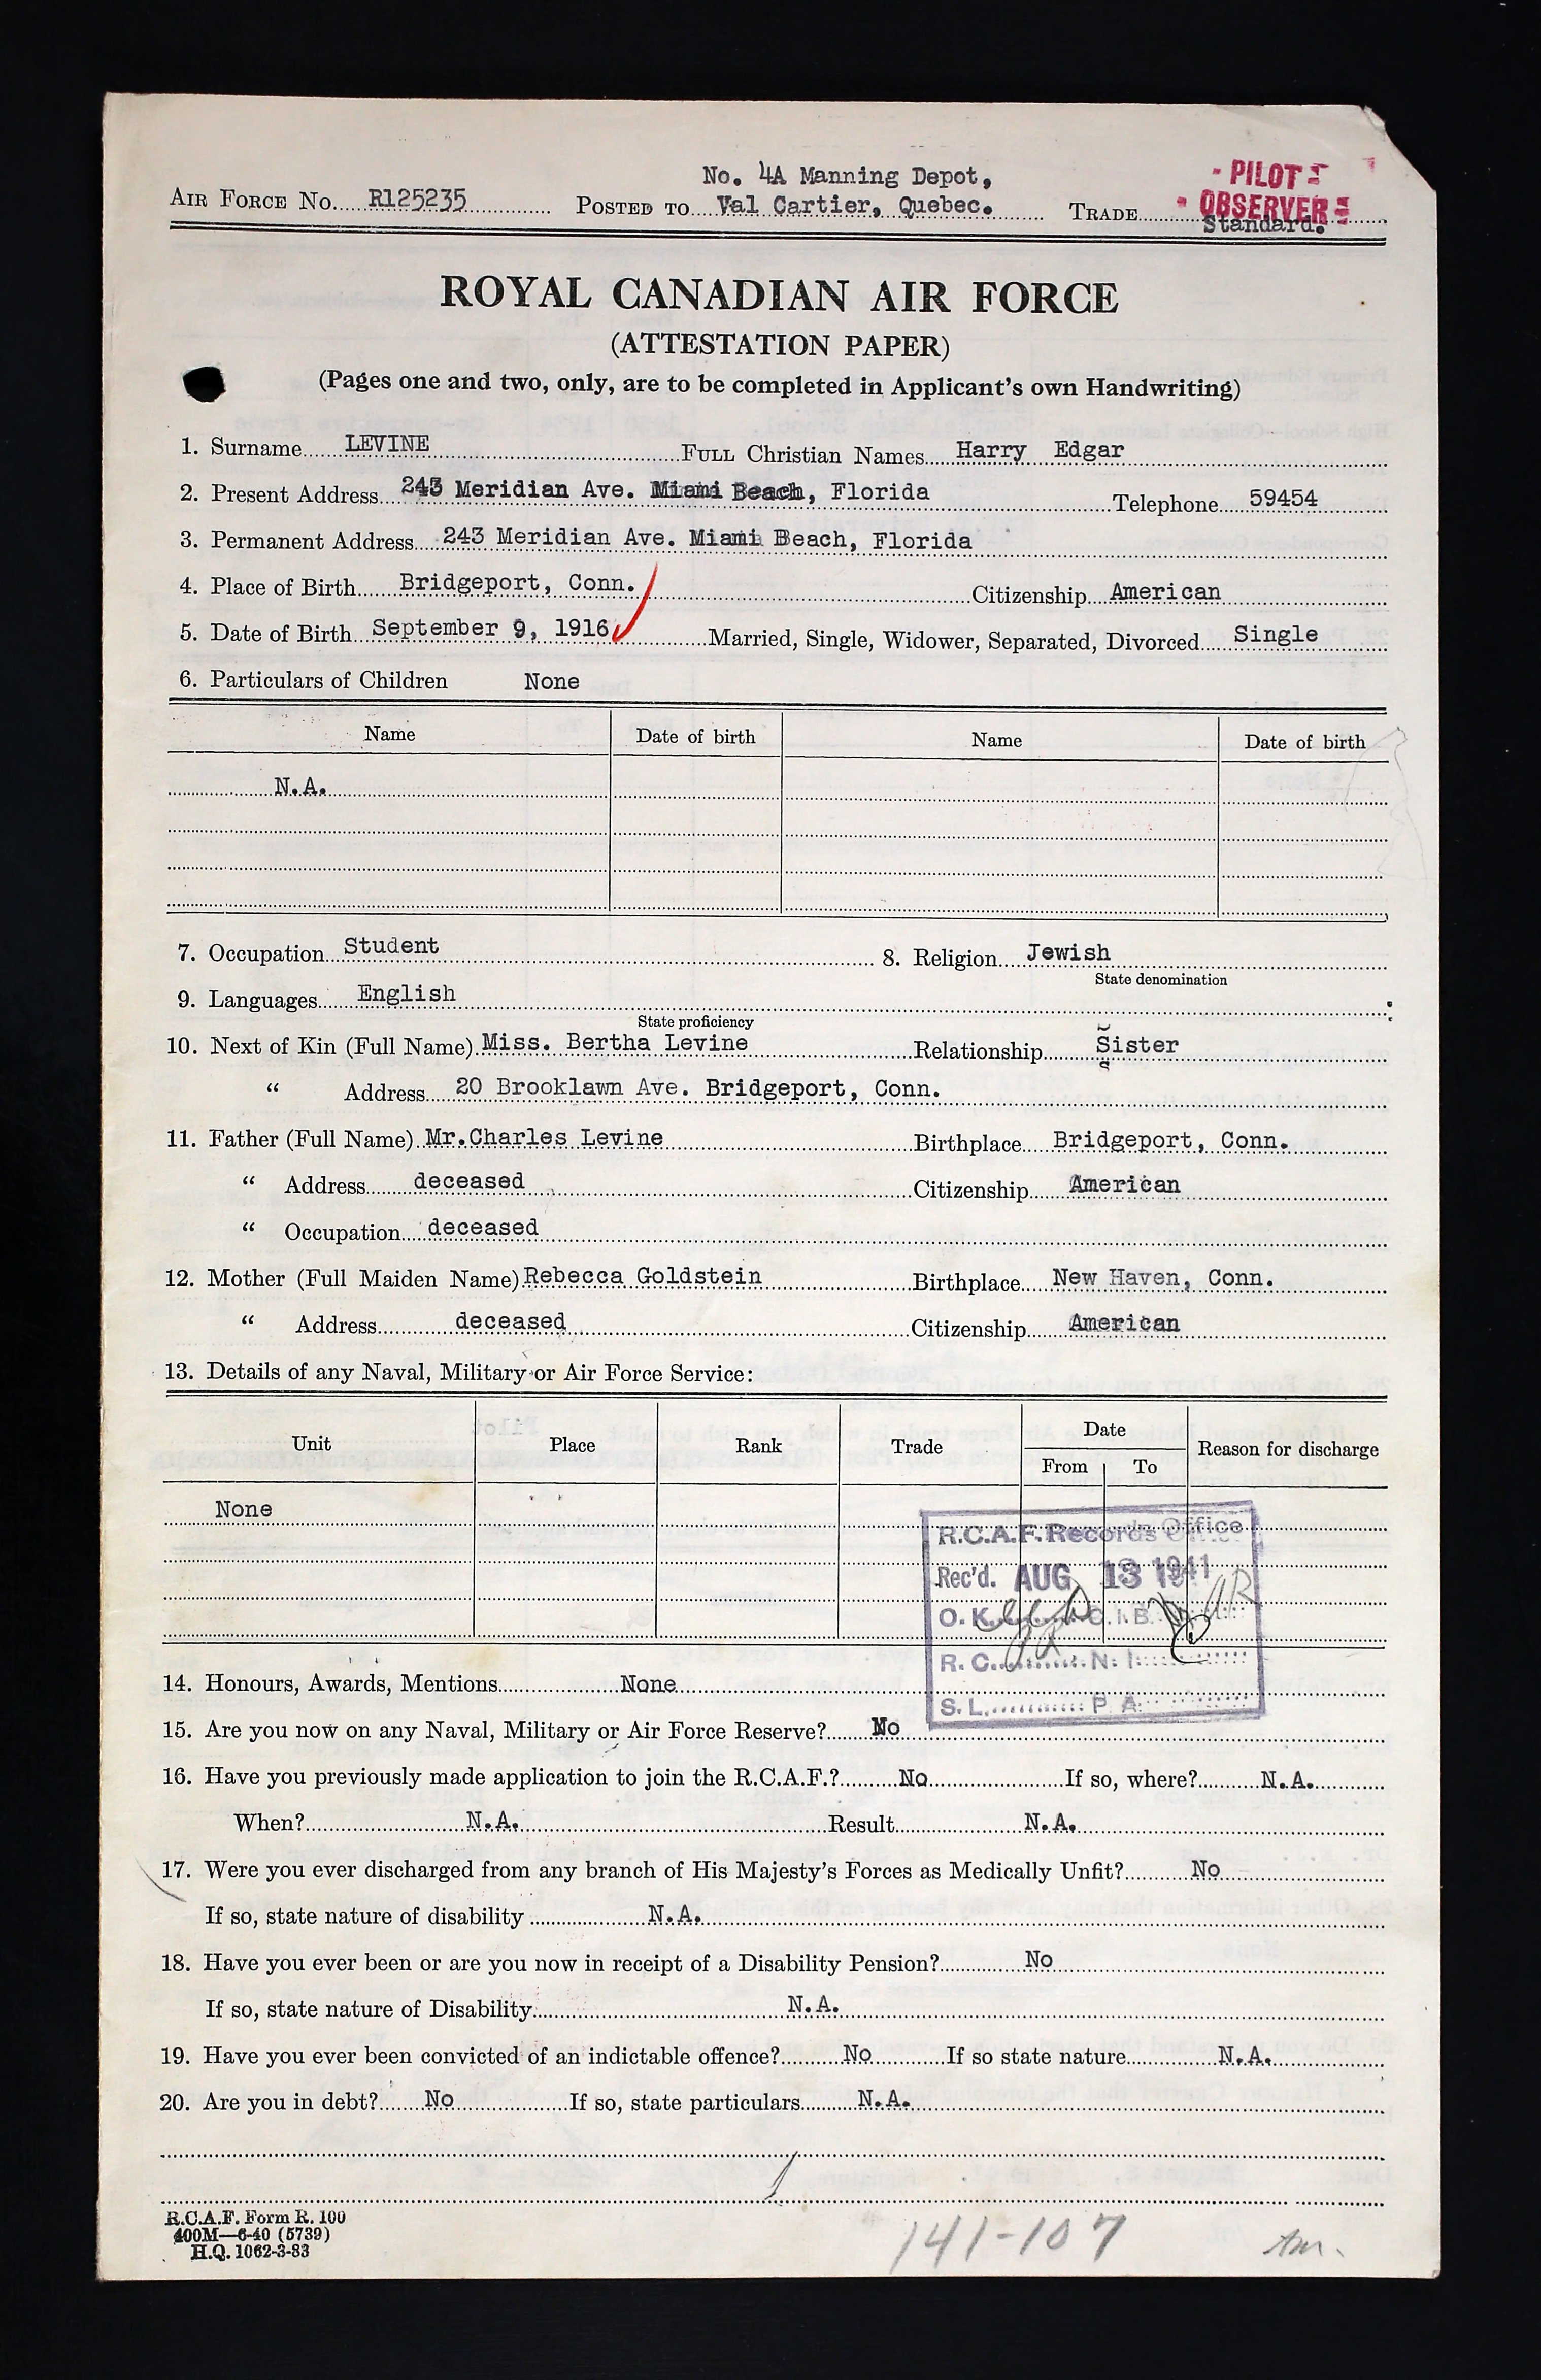 No. 4A Manning Depot,
- PILOT -
AIR FORCE No. R125235 POSTED TO Val Cartier, Quebec. TRADE OBSERVER
Standard.
ROYAL CANADIAN AIR FORCE
(ATTESTATION PAPER)
(Pages one and two, only, are to be completed in Applicant's own Handwriting)
1. Surname LEVINE FULL Christian Names Harry Edgar
2. Present Address 243 Meridian Ave. Miami Beach, Florida Telephone 59454
3. Permanent Address 243 Meridian Ave. Miami Beach, Florida
4. Place of Birth Bridgeport, Conn. Citizenship American
5. Date of Birth September 9, 1916 Married, Single, Widower, Separated, Divorced Single
6. Particulars of Children None
Name Date of birth Name Date of birth
N.A.
7. Occupation Student 8. Religion Jewish
State denomination
9. Languages English
State proficiency
10. Next of Kin (Full Name) Miss. Bertha Levine Relationship Sister
“ Address 20 Brooklawn Ave. Bridgeport, Conn.
11. Father (Full Name) Mr. Charles Levine Birthplace Bridgeport, Conn.
“ Address deceased Citizenship American
“ Occupation deceased
12. Mother (Full Maiden Name) Rebecca Goldstein Birthplace New Haven, Conn.
“ Address deceased Citizenship American
13. Details of any Naval, Military or Air Force Service:
Unit Place Rank Trade Date Reason for discharge
From To
None
R.C.A.F. Records Office
Rec'd. AUG 13 1941
O. K. C. I. B.
R. C. N. I.
S. L. P. A.
14. Honours, Awards, Mentions None
15. Are you now on any Naval, Military or Air Force Reserve? No
16. Have you previously made application to join the R.C.A.F.? No If so, where? N.A.
When? N.A. Result N.A.
17. Were you ever discharged from any branch of His Majesty's Forces as Medically Unfit? No
If so, state nature of disability N.A.
18. Have you ever been or are you now in receipt of a Disability Pension? No
If so, state nature of Disability N.A.
19. Have you ever been convicted of an indictable offence? No If so state nature N.A.
20. Are you in debt? No If so, state particulars N.A.
R.C.A.F. Form R. 100
400M—6-40 (5739)
H.Q. 1062-3-83
141-107